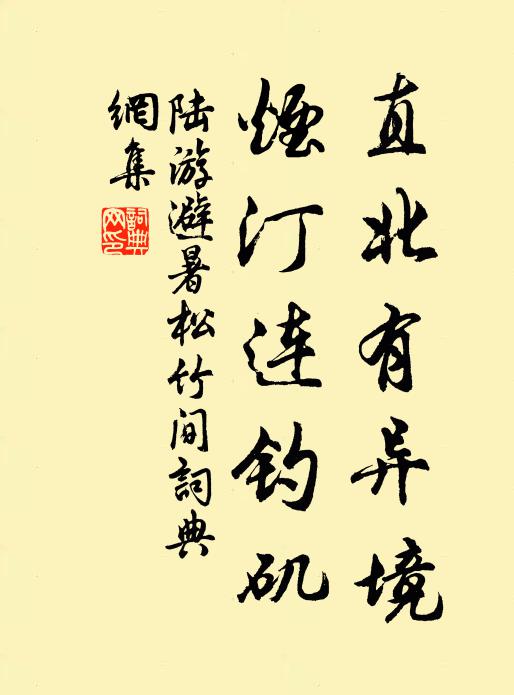 直北有异境
煙汀连钓矶
陆游避暑松竹间詞典
網集
詞典
网印